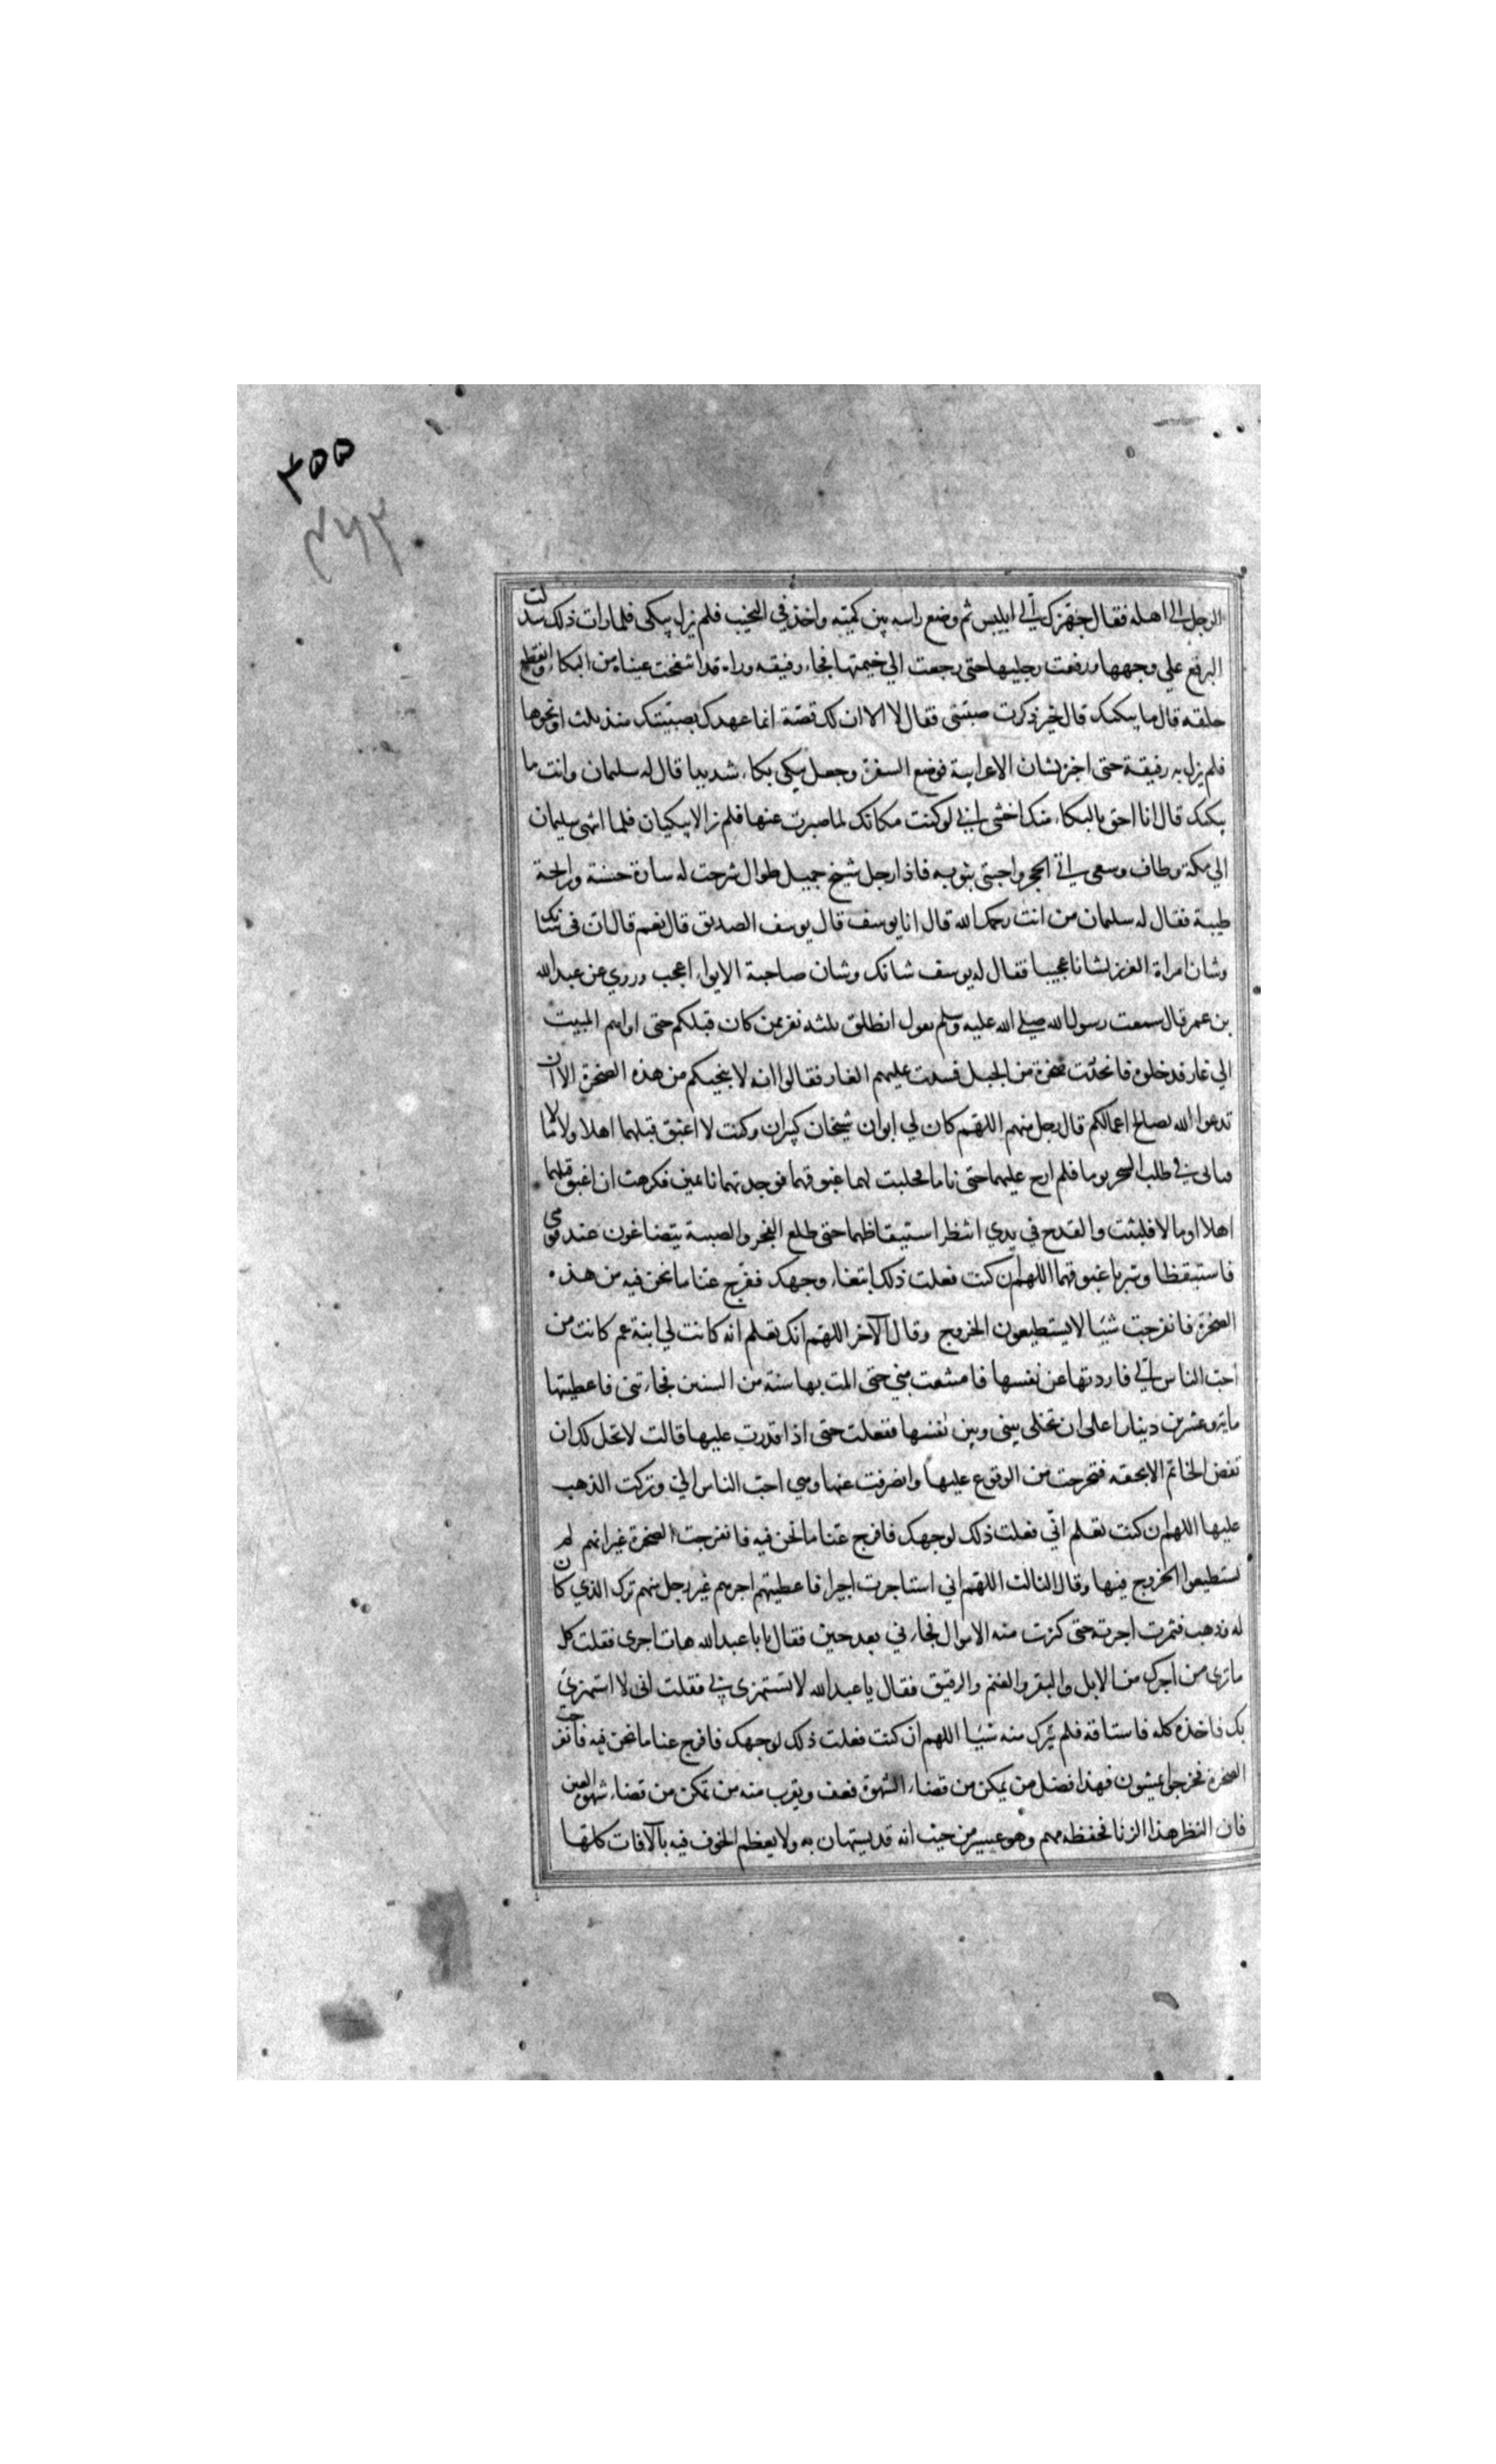 ۳۵۵
۴۶۳
الرجل الى اهله فقال جهزك الي ابليس ثم وضع راسه بين كميته واخذ في النحيب فلم يزل يبكى فلما رات ذلك سدلت
البرقع علي وجهها ورفعت رجليها حتى رجعت الي خيمتها فجاء رفيقه وراه قد انتفخت عيناه من البكاء وانقطع
حلقه قال ما يبكيك قال خير ذكرت صبيتى فقال لا الا ان لك قصة انما عهدك بصبيتك منذ ثلث او نحوها
فلم يزل به رفيقة حتى اخبره بشان الاعرابية فوضع السفرة وجعل يبكى بكاء شديدا قال له سلمان وانت ما
يبكيك قال انا احق بالبكاء منك اخشى اني لو كنت مكانك لما صبرت عنها فلم يزالا يبكيان فلما انتهى سليمان
الي مكة وطاف وسعى اتى الحجر واحتبى بثوبه فاذا رجل شيخ جميل طوال شرحت له سارة حسنة ورايحة
طيبة فقال له سلمان من انت رحمك الله قال انا يوسف قال يوسف الصديق قال نعم قال ان فى شانك
وشان امراة العزيز لشانا عجيبا فقال له يوسف شانك وشان صاحبة الابواء اعجب وروي عن عبد الله
بن عمر قال سمعت رسول الله صلى الله عليه وسلم يقول انطلق ثلثه نفر ممن كان قبلكم حتى اواهم المبيت
الي غار فدخلوه فانحدرت صخرة من الجبل فسدت عليهم الغار فقالوا انه لا ينجيكم من هذه الصخرة الا ان
تدعوا الله بصالح اعمالكم قال رجل منهم اللهم كان لي ابوان شيخان كبيران وكنت لا اغبق قبلهما اهلا ولا مالا
فنانى فى طلب الشجر يوما فلم ارح عليهما حتى ناما فحلبت لهما غبوقهما فوجدتهما نايمين فكرهت ان اغبق قبلهما
اهلا او مالا فلبثت والقدح في يدي انتظر استيقاظهما حتى طلع الفجر والصبية يتضاغون عند قدمي
فاستيقظا وشربا غبوقهما اللهم ان كنت فعلت ذلك ابتغاء وجهك ففرج عنا ما نحن فيه من هذه
الصخرة فانفرجت شيئا لا يستطيعون الخروج وقال الآخر اللهم انك تعلم انه كانت لي ابنة عم كانت من
احب الناس الي فاردتها عن نفسها فامتنعت مني حتى المت بها سنة من السنين فجاءتنى فاعطيتها
ماية وعشرين دينارا على ان تخلى بينى وبين نفسها ففعلت حتى اذا قدرت عليها قالت لا تحل لك ان
تفض الخاتم الا بحقه فتحرجت من الوقوع عليها وانصرفت عنها وهي احب الناس الي وتركت الذهب
عليها اللهم ان كنت تعلم اني فعلت ذلك لوجهك فافرج عنا ما نحن فيه فانفرجت الصخرة غير انهم لم
يستطيعوا الخروج منها وقال الثالث اللهم اني استاجرت اجيرا فاعطيتهم اجرهم غير رجل منهم ترك الذي كان
له وذهب فثمرت اجرته حتى كثرت منه الاموال فجاءني بعد حين فقال يابا عبد الله هات اجرى فقلت كل
ما ترى من اجرك من الابل والبقر والغنم والرقيق فقال يا عبد الله لا تستهزى بي فقلت انى لا استهزئ
بك فاخذه كله فاستاقه فلم يترك منه شيئا اللهم ان كنت فعلت ذلك لوجهك فافرج عنا ما نحن فيه فانفرجت
الصخرة فخرجوا يمشون فهذا فضل من يمكن من قضاء الشهوة فعف ويقرب منه من تمكن من قضاء شهوة العين
فان النظر هذا الزنا فحفظه مهم وهو عسير من حيث انه قد يستهان به ولا يعظم الخوف فيه بالآفات كلها